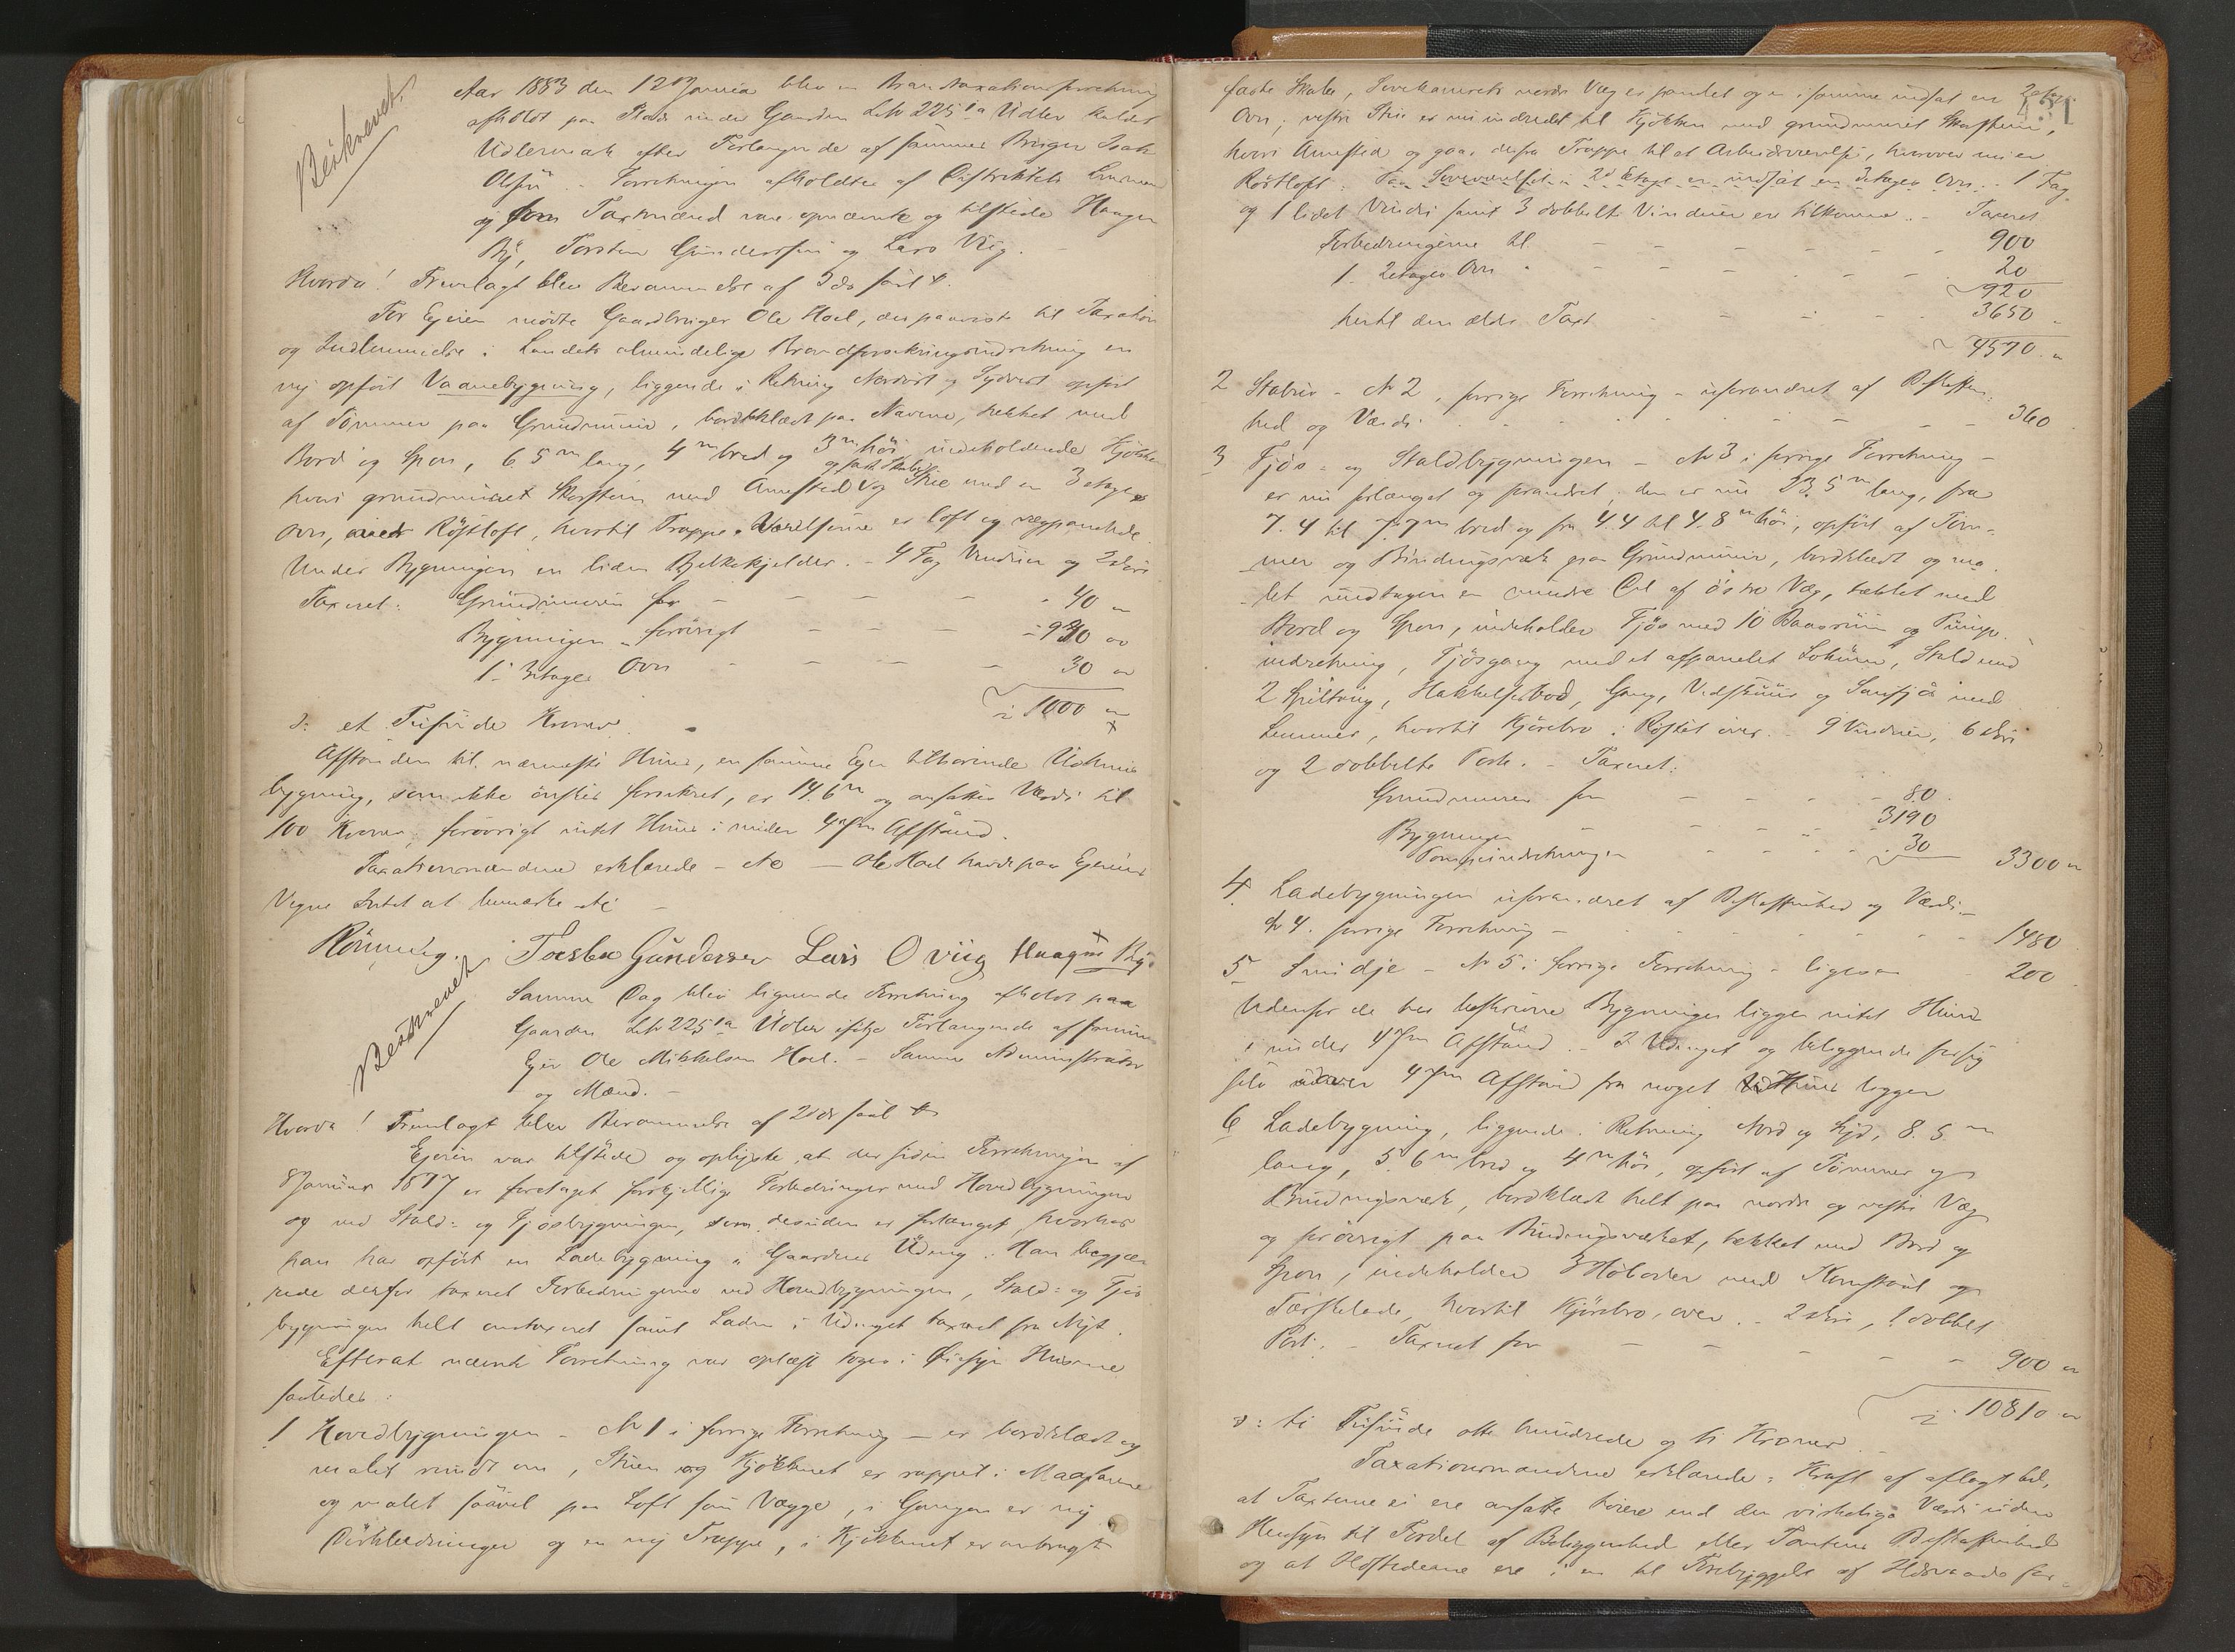 Beskrevet.
Aar 1883 den 12 Januar blev en Brandtaxationsforretning
afholdt paa Plads under Gaarden LNo 225 1a Udler kaldet
Udlermark efter Forlangende af sammes Bruger Isak
Olsen. Forretningen afholdtes af Distriktets Lensmand
og som Taxtmænd vare opnævnte og tilstede Haagen
By, Torsten Gundersen og Lars Viig.
Hvorda! Fremlagt blev Berammelse af 2 ds saal.
For Eieren mødte Gaardbruger Ole Hoel, der paaviste til Taxation
og Indlemmelse i Landets almindelige Brandforsikringsindretning en
ny opført Vaanebygning, liggende i Retning Nordost og Sydvest opført
af Tømmer paa Grundmuur, bordklædt paa Navene, tækket med
Bord og Spon, 6.5 m lang, 4 m bred og 3 m høi indeholdende Kjøkken
hvori grundmuret Skorsten med Arnested og faste Skabe og Stue med en 3 etages
Ovn, over Røstloft, hvortil Trappe. Værelserne er loft og vægpanelede.
Under Bygningen en liden Bjelkekjelder. - 4 Fag Vinduer og 2 Døre
Taxeret: Grundmuren for - - - - 40 "
Bygningen forøvrigt - - - 930 "
1. 3 etages Ovn - - - - 30 "
1000 "
o: et Tusinde Kroner.
Afstanden til nærmeste Huus, en samme Eier tilhørende Udhuus
bygning, som ikke ønskes forsikret, er 14.6 m og ansattes Værdi til
100 Kroner; forøvrigt intet Huus i under 47 m Afstand.
Taxationsmændene erklærede - No - Ole Hoel havde paa Eierens
Vegne Intet at bemærke. No -
Rönning. Torsten Gundersen Lars O Viig Haagen By.
Beskrevet
Samme Dag blev lignende Forretning afholdt paa
Gaarden LNo 225 1a Udler ifølge Forlangende af sammes
Eier Ole Mikkelsen Hoel. - Samme Administrator
og Mænd. -
Hvorda! Fremlagt blev Berammelse af 2 ds saal
Eieren var tilstede og oplyste, at der siden Forretningen af
8 Januar 1877 er foretaget forskjellige Forbedringer med Hovedbygningen
og ved Stald= og Fjøsbygningen, som desuden er forlænget, hvorhos
han har opført en Ladebygning i Gaardens Udeng. Han begjæ=
rede derfor taxeret Forbedringerne ved Hovedbygningen, Stald= og Fjøs
bygningen helt omtaxeret samt Laden i Udenget taxeret fra Nyt.
Efterat nævnte Forretning var oplæst toges i Øiesyn Husene
saaledes:
1 Hovedbygningen - No 1 i forrige Forretning - er bordklædt og
malet rundt om, Stuen og Kjøkkenet er rappet i Maaserne
og malet saavel paa Loft som Vægge, i Gangen er ny
Dørklædninger og en ny Trappe, i Kjøkkenet er anbragt
faste Skabe, Sovekamrets nordre Væg er panelet og er i samme indsat en 2 etages
Ovn; vestre Stue er nu indredet til Kjøkken med grundmuret Skorsten,
hvori Arnested og gaar derfra Trappe til et Arbeidsværelse, hvorover nu er
Røstloft. Paa Soveværelset i 2d Etage er indsat en 3 etages Ovn. 1 Fag
og 1 lidet Vindu samt 3 dobbelte Vinduer ere tilkomne. - Taxeret
Forbedringerne til - - - - - 900
1. 2 etages Ovn - - - - - 20
920
hertil den ældre Taxt - - - - 3650
4570. "
2 Stabur - No 2, forrige Forretning - uforandret af Beskaffen=
hed og Værdi - - - - - 360
3 Fjøs= og Staldbygningen - No 3 i forrige Forretning -
er nu forlænget og forandret, den er nu 23.5 m lang, fra
7.4 til 7.7 m bred og fra 4.4 til 4.8 m høi, opført af Tøm=
mer og Bindingsværk paa Grundmuur, bordklædt og ma=
let undtagen en mindre Del af østre Væg, tækket med
Bord og Spon, indeholder Fjøs med 10 Baasrum og Pumpe=
indretning, Fjøsgang med et afpanelet Lokum, Stald med
2 Spiltoug, Hakkelsesbod, Gang, Vedskuur og Sauefjøs med
Lemmer, hvortil Kjørebro i Røstet over. - 9 Vinduer, 6 Døre
og 2 dobbelte Porte. - Taxeret:
Grundmuren for - - - - 80.
Bygningen - - - - 3190
Pompeindretningen - - - - 30
3300 "
4 Ladebygningen uforandret af Beskaffenhed og Værdi -
No 4. forrige Forretning - - - - 1480
5 Smidje - No 5 i forrige Forretning - ligesaa - 200
Udenfor de her beskrevne Bygninger ligger intet Huus
i under 47 m Afstand. - I Udenget og beliggende for sig
selv i over 47 m Afstand fra noget Huus ligger
6 Ladebygning, liggende i Retning Nord og Syd, 8.5 m
lang, 5.6 m bred og 4 m høi, opført af Tømmer og
Bindingsværk, bordklædt helt paa nordre og vestre Væg
og forøvrigt paa Bindingsværket, tækket med Bord og
Spon, indeholder 3 Høboder med Kornstaal og
Tærskelade, hvortil Kjørebro, over. - 2 Døre, 1 dobbelt
Port. - Taxeret for - - - - 900 "
10810 "
o: ti Tusinde otte hundrede og ti Kroner. -
Taxationsmændene erklærede i Kraft af aflagt Ed,
at Taxterne ei ere ansatte høiere end den virkelige Værdi uden
Hensyn til Fordel af Beliggenhed eller Tomtens Beskaffenhed
og at Ildstederne ere i en til Forebyggelse af Ildsvaade for=